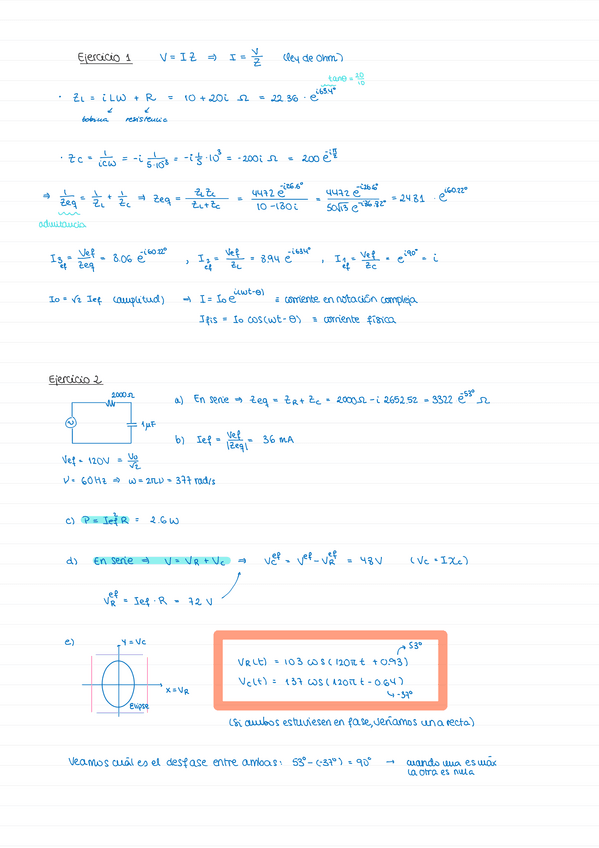 Ejercicio 1 V = I Z ⇒ I = V/Z (ley de Ohm)
tanθ = 20/10
· ZL = iLW + R = 10 + 20i Ω = 22.36 · e^i63.4°
bobina resistencia
· Zc = 1/icω = -i 1/5·10^-3 = -i 1/5 · 10^3 = -200i Ω = 200 e^-iπ/2
⇒ 1/Zeq = 1/ZL + 1/Zc ⇒ Zeq = ZLZc/ZL+Zc = 4472 e^-i26.6°/10-180i = 4472 e^-i26.6°/50√13 e^-i86.82° = 24.81 · e^i60.22°
admitancia
I3ef = Vef/Zeq = 8.06 e^-i60.22° , I2ef = Vef/ZL = 8.94 e^-i63.4° , I1ef = Vef/Zc = e^i90° = i
Io = √2 Ief (amplitud) ⇒ I = Io e^i(wt-θ) ≡ corriente en notación compleja
Ifis = Io cos(wt - θ) ≡ corriente física
Ejercicio 2
2000Ω
1μF
a) En serie ⇒ Zeq = ZR + Zc = 2000Ω - i 2652.52 = 3322 e^-53° Ω
b) Ief = Vef/|Zeq| = 36 mA
Vef = 120V = Vo/√2
ν = 60Hz ⇒ ω = 2πν = 377 rad/s
c) P = Ief² R = 2.6 W
d) En serie ⇒ V = VR + Vc ⇒ Vc^ef = V^ef - VR^ef = 48V (Vc = I Xc)
VR^ef = Ief · R = 72 V
e) y = Vc
x = VR
Elipse
53°
VR(t) = 103 cos(120π t + 0.93)
Vc(t) = 137 cos(120π t - 0.64)
-37°
(Si ambos estuviesen en fase, veríamos una recta)
Veamos cuál es el desfase entre ambas: 53° - (-37°) = 90° → cuando una es máx
la otra es nula